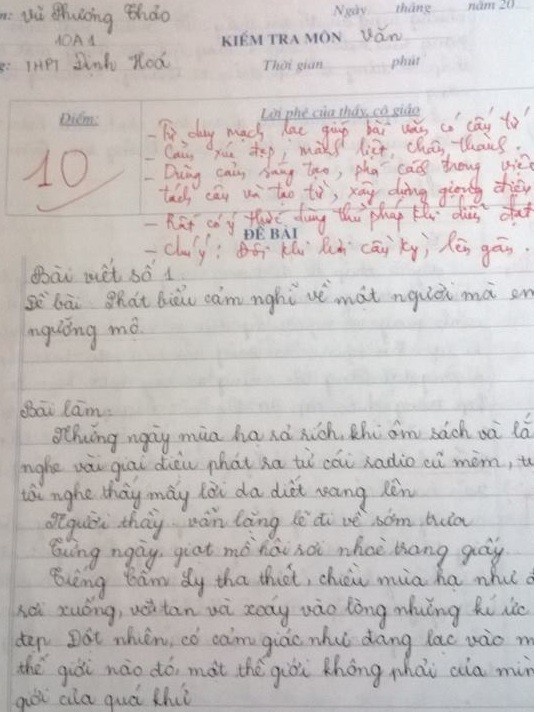 n: Vũ Phương Thảo
Ngày tháng năm 20...
10A1
KIỂM TRA MÔN Văn
g: THPT Định Hoá
Thời gian phút
Điểm:
Lời phê của thầy, cô giáo
10
- Tư duy mạch lạc giúp bài văn có cấu tứ
- Cảm xúc đẹp, mãnh liệt, chân thành.
- Dùng câu sáng tạo, phá cách trong việc
tách câu và tạo từ, xây dựng giọng điệu
- Rất có ý thức dùng thủ pháp khi diễn đạt
ĐỀ BÀI
- Chú ý: Đôi khi hơi cầu kỳ, lên gân.
Bài viết số 1.
Đề bài: Phát biểu cảm nghĩ về một người mà em
ngưỡng mộ.
Bài làm:
Những ngày mùa hạ rả rích, khi ôm sách và lắ
nghe vài giai điệu phát ra từ cái radio cũ mèm, t
tôi nghe thấy mấy lời da diết vang lên
Người thầy vẫn lặng lẽ đi về sớm trưa
Từng ngày, giọt mồ hôi rơi nhoè trang giấy
Tiếng Cẩm Ly tha thiết, chiều mùa hạ như đ
rơi xuống, vỡ tan và xoáy vào lòng những kí ức
đẹp. Đột nhiên, có cảm giác như đang lạc vào m
thế giới nào đó, một thế giới không phải của mìn
giới của quá khứ